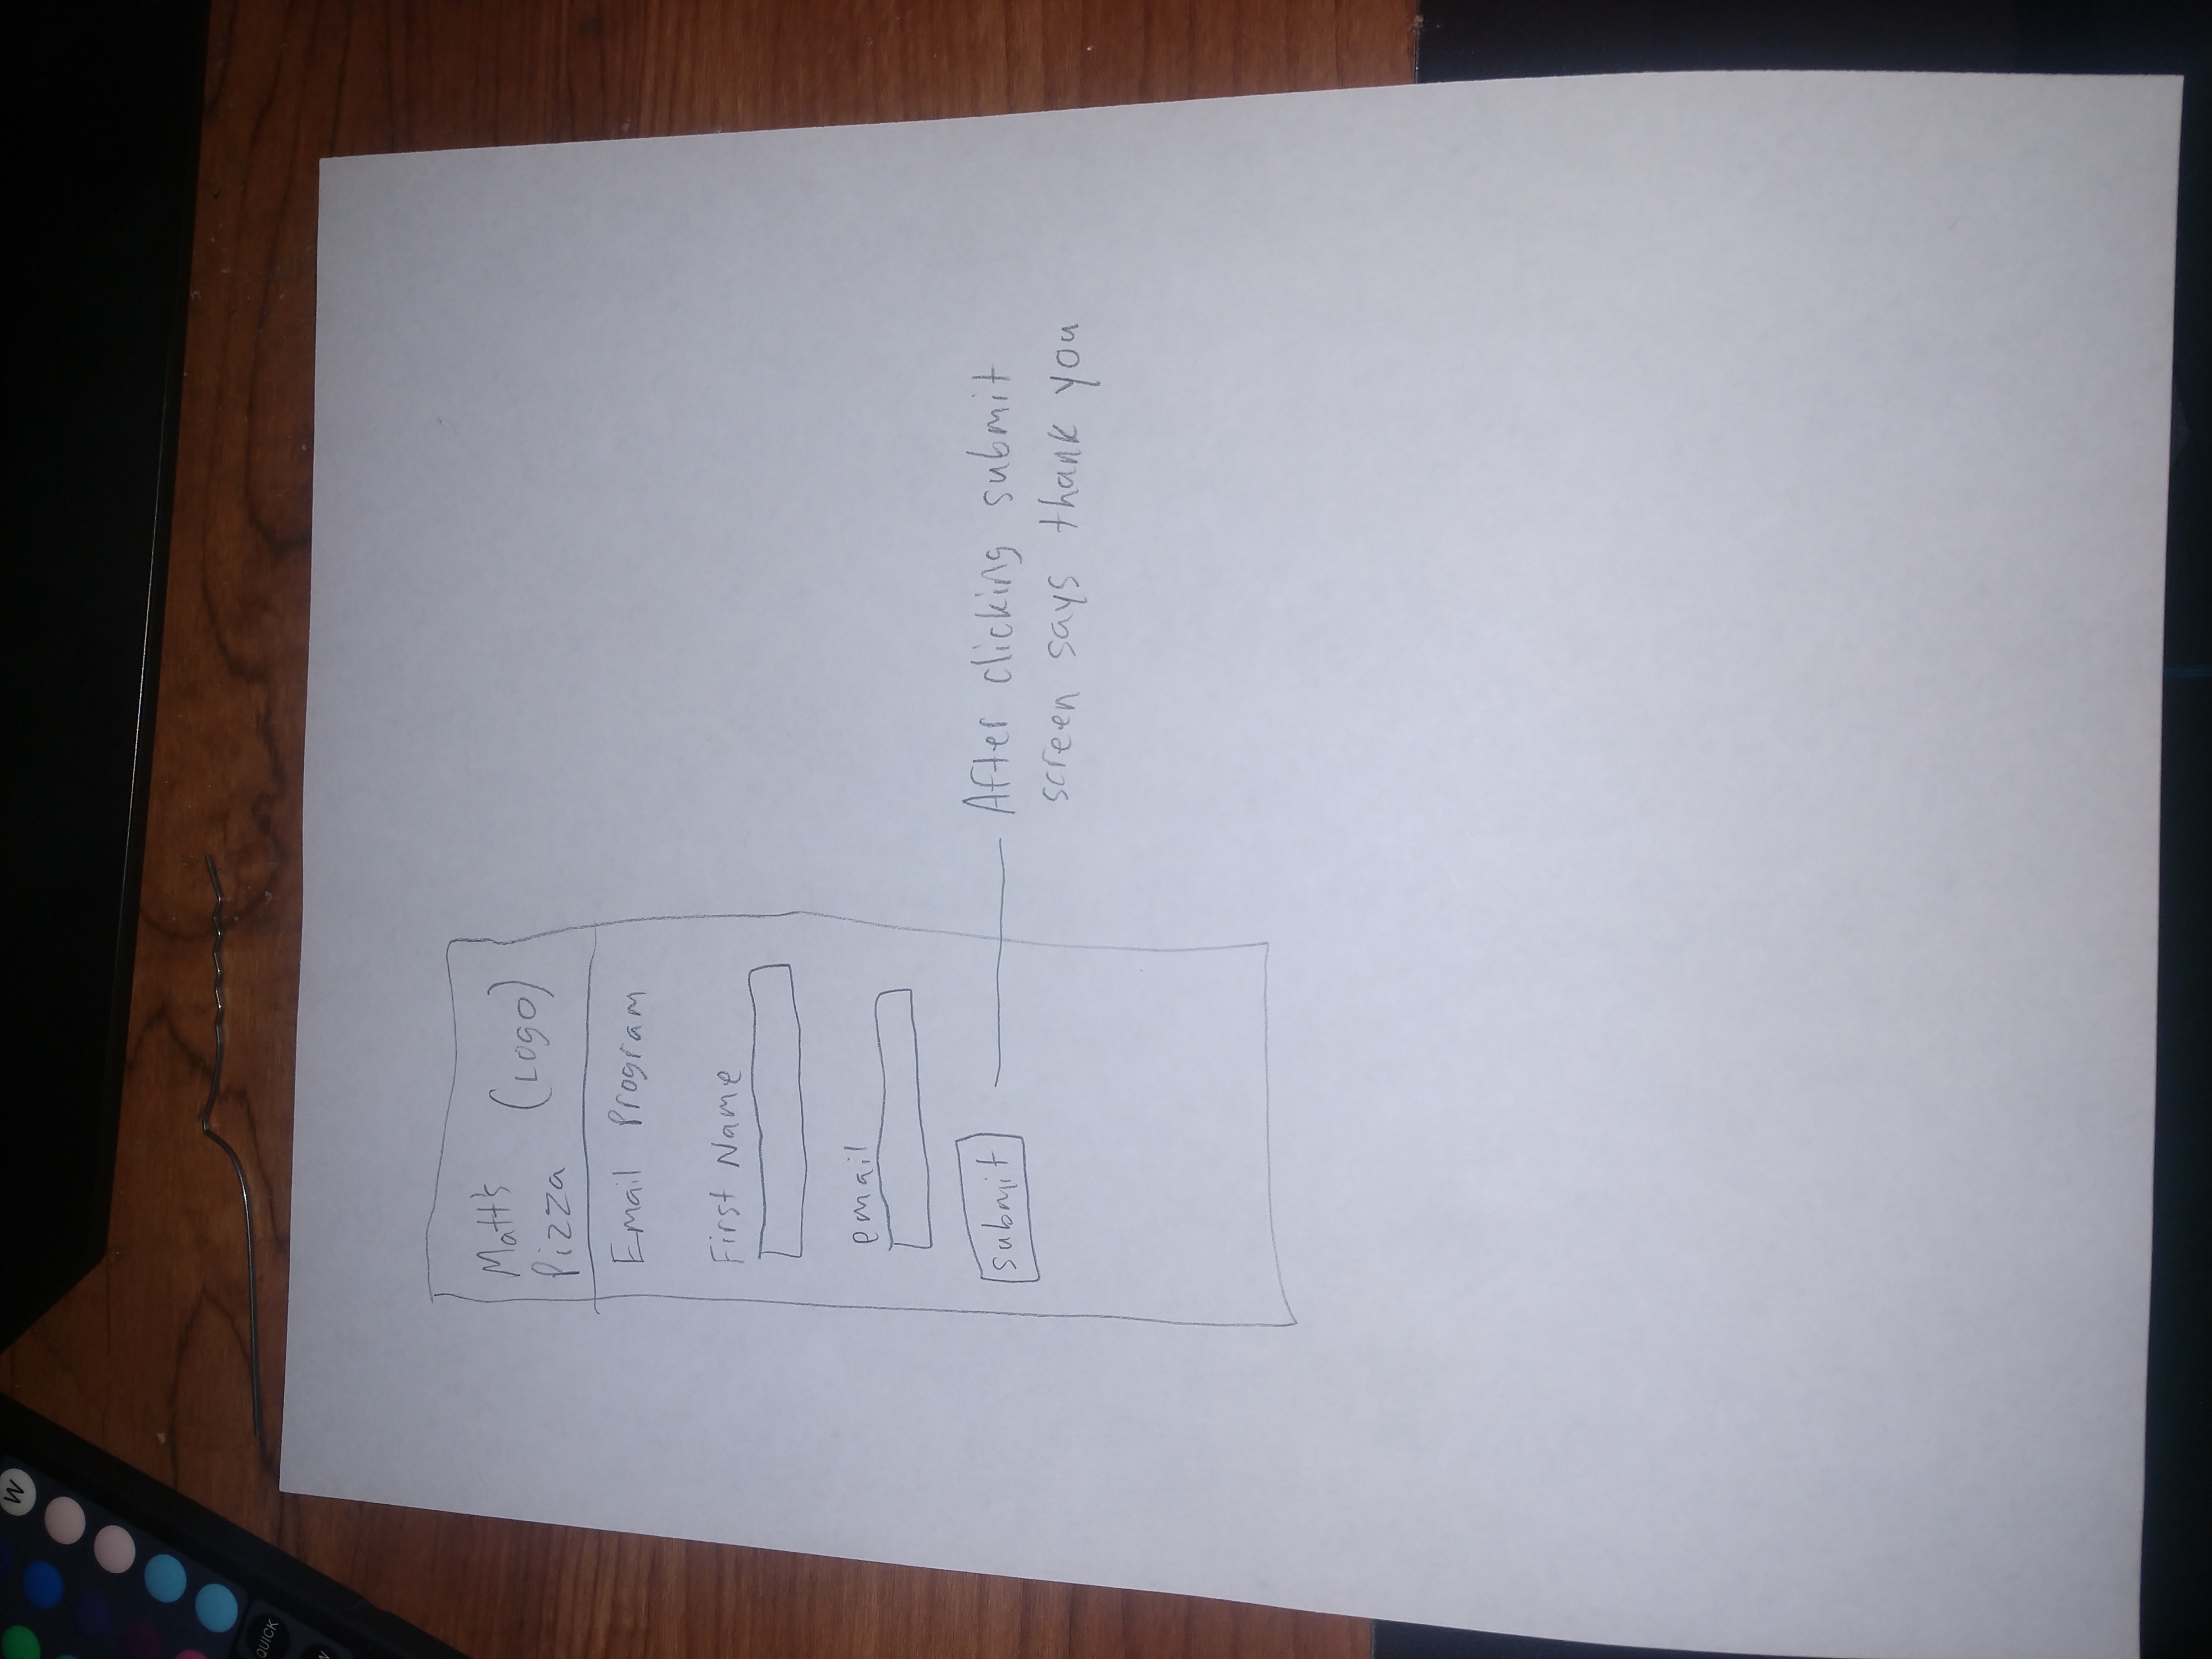 W
QUICK
Matt's
Pizza
(Logo)
Email Program
First Name
email
submit
After clicking submit
screen says thank you